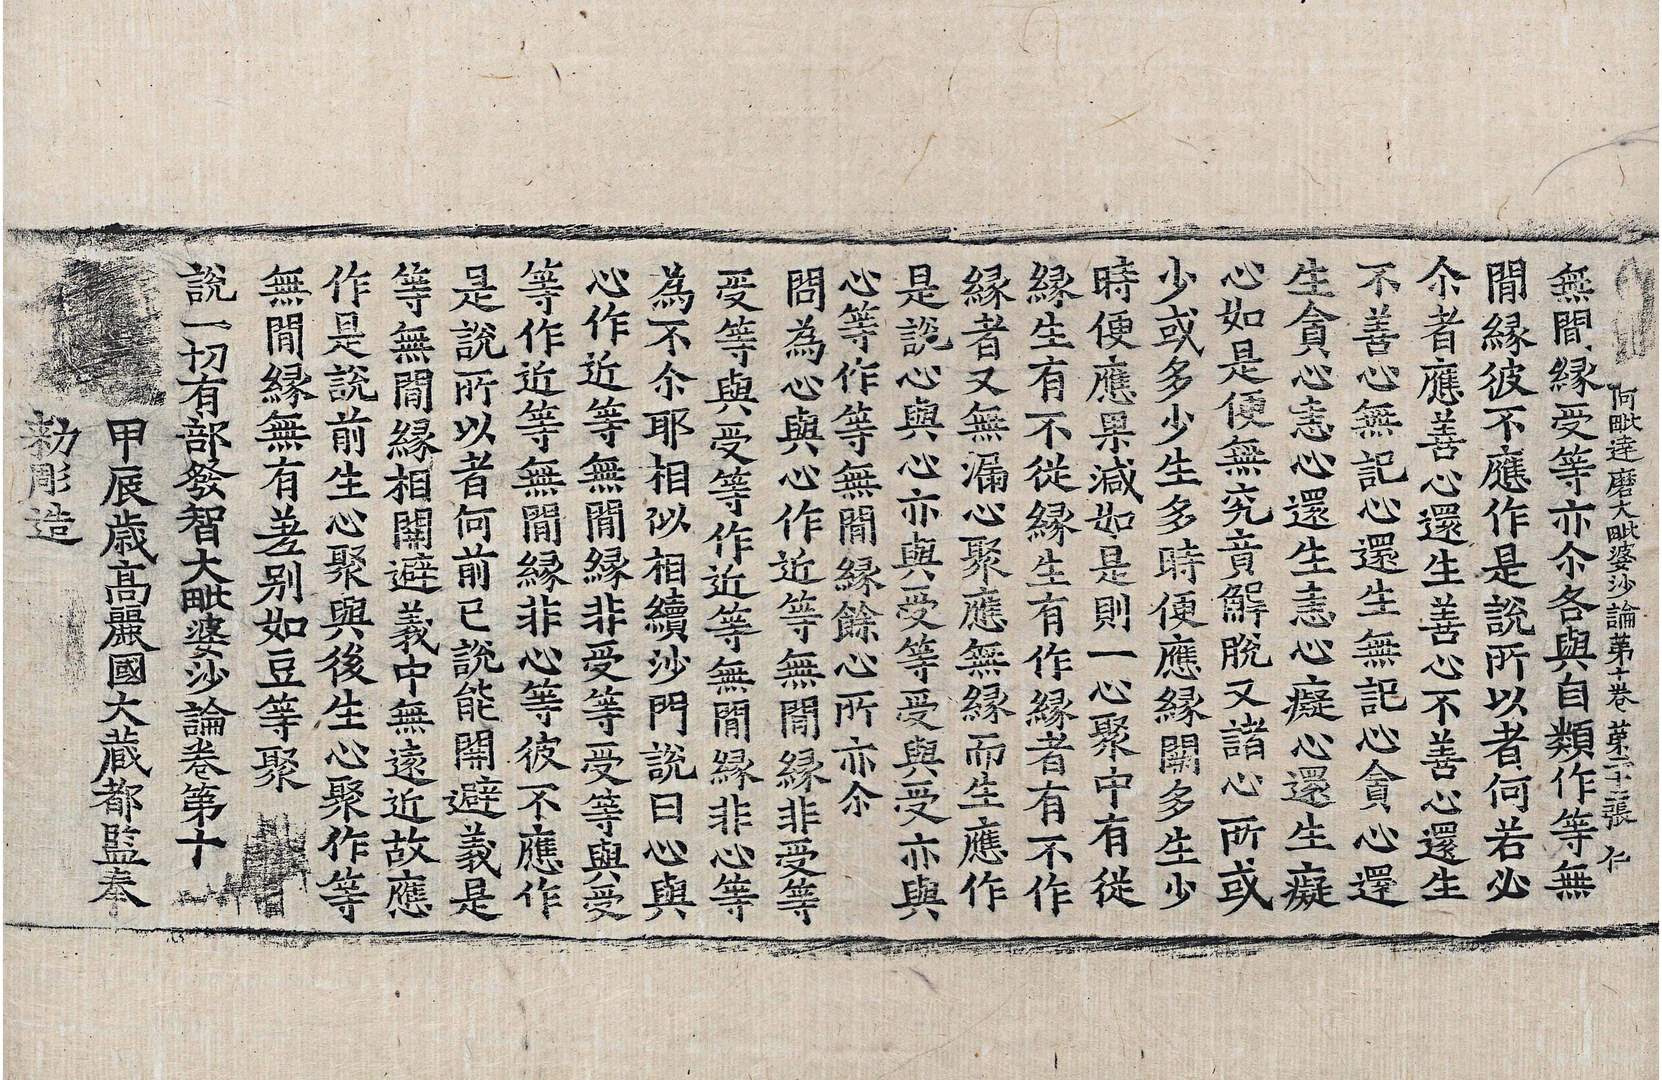 阿毗達磨大毗婆沙論第十卷 第二十二張 仁
無間縁受等亦尒各與自類作等無
間縁彼不應作是說所以者何若必
尒者應善心還生善心不善心還生
不善心無記心還生無記心貪心還
生貪心恚心還生恚心癡心還生癡
心如是便無究竟解脫又諸心所或
少或多少生多時便應縁闕多生少
時便應果減如是則一心聚中有從
縁生有不從縁生有作縁者有不作
縁者又無漏心聚應無縁而生應作
是說心與心亦與受等受與受亦與
心等作等無間縁餘心所亦尒
問為心與心作近等無間縁非受等
受等與受等作近等無間縁非心等
為不尒耶相似相續沙門說曰心與
心作近等無間縁非受等受等與受
等作近等無間縁非心等彼不應作
是說所以者何前已說能開避義是
等無間縁相開避義中無遠近故應
作是說前生心聚與後生心聚作等
無間縁無有差別如豆等聚
說一切有部發智大毗婆沙論卷第十
甲辰歳高麗國大藏都監奉
勑彫造